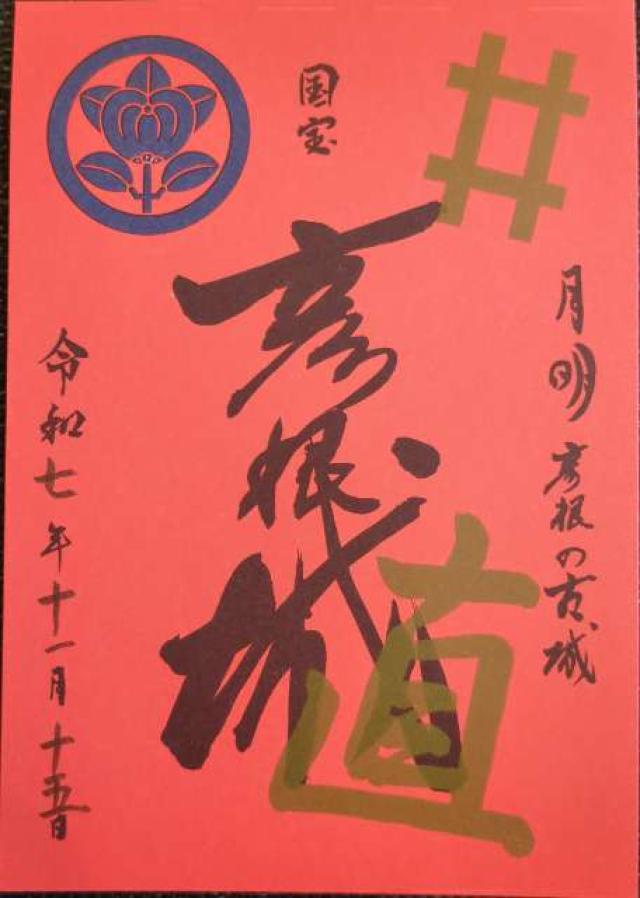 井
月明彦根の古城
国宝
彦根城
直
令和七年十一月十五日